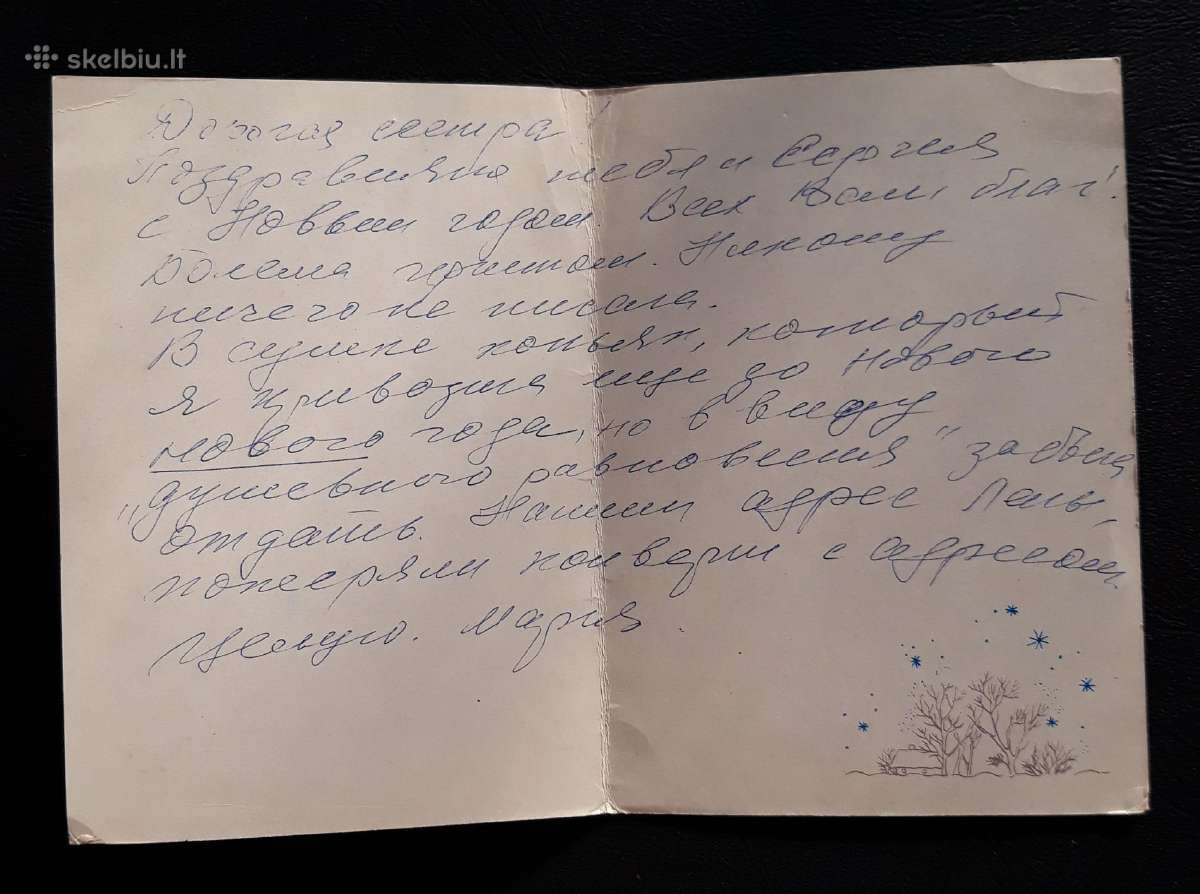 skelbiu.lt
Дорогая сестра!
Поздравляю тебя и Сергея
с Новым годом. Всех Вам благ!
Болела гриппом. Никому
ничего не писала.
В сумке коньяк, который
я привозила еще до нового
нового года, но в виду
"душевного равновесия" забыла
отдать. Напиши адрес Лены,
потеряли конверт с адресом
Целую. Мария.